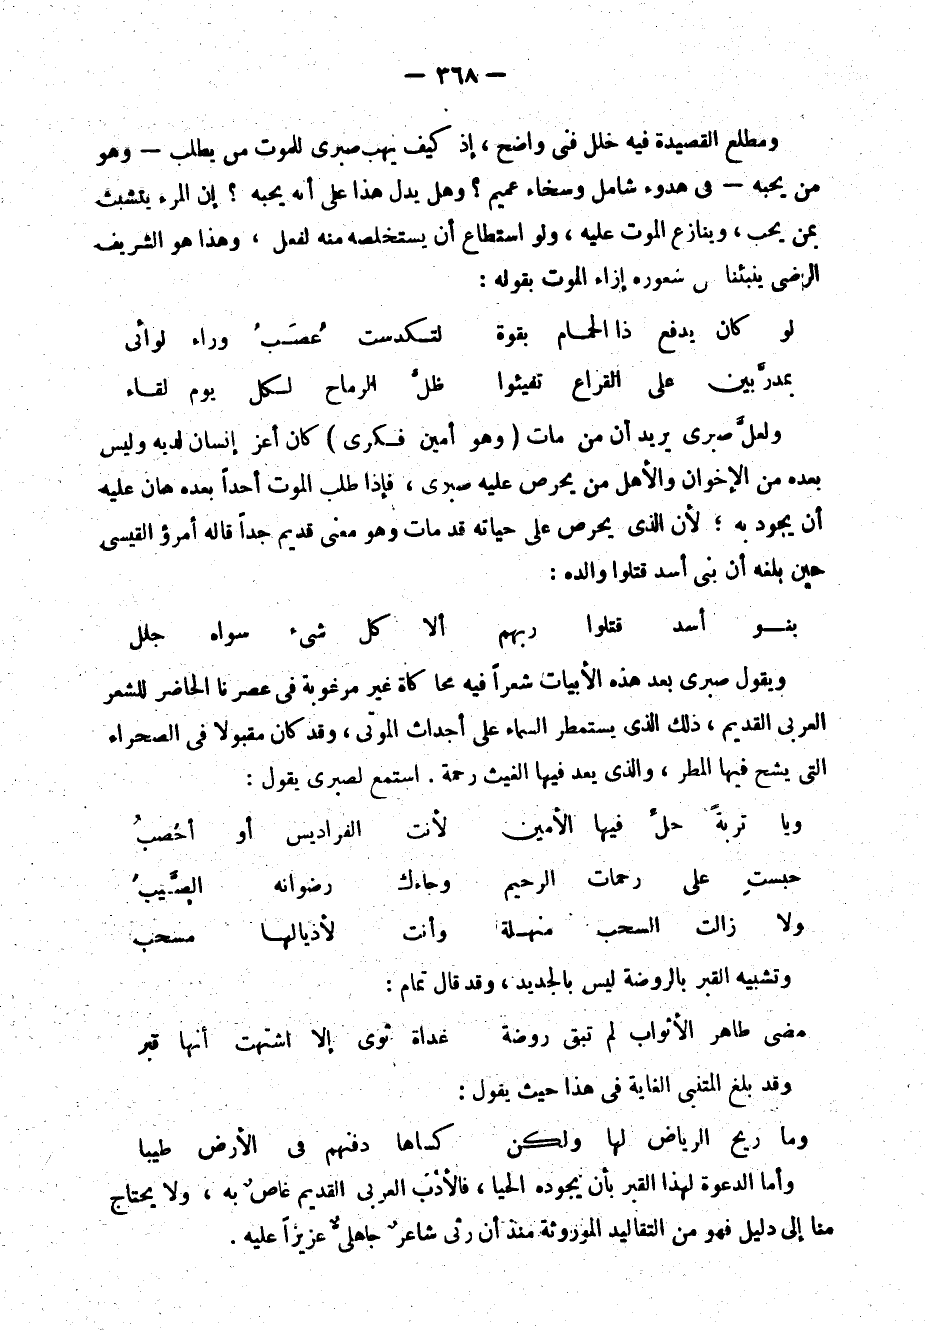 — ٣٦٨ —
ومطلع القصيدة فيه خلل فنى واضح ، إذ كيف يهب صبرى للموت من يطلب — وهو
من يحبه — فى هدوء شامل وسخاء عميم ؟ وهل يدل هذا على أنه يحبه ؟ إن المرء يتشبث
بمن يحب ، وينازع الموت عليه ، ولو استطاع أن يستخلصه منه لفعل ، وهذا هو الشريف
الرضى ينبئنا شعوره إزاء الموت بقوله :
لو كان يدفع ذا الحمام بقوة لتكدست عُصَبُ وراء لوائى
بمدرَّبين على القراع تفيئوا ظلَّ الرماح لكل يوم لقاء
ولعلَّ صبرى يريد أن من مات ( وهو أمين فكرى ) كان أعز إنسان لديه وليس
بعده من الإخوان والأهل من يحرص عليه صبرى ، فإذا طلب الموت أحداً بعده هان عليه
أن يجود به ؛ لأن الذى يحرص على حياته قد مات وهو معنى قديم جداً قاله أمرؤ القيس
حين بلغه أن بنى أسد قتلوا والده :
بنو أسد قتلوا ربهم ألا كل شىء سواه جلل
ويقول صبرى بعد هذه الأبيات شعراً فيه محاكاة غير مرغوبة فى عصرنا الحاضر للشعر
العربى القديم ، ذلك الذى يستمطر السماء على أجداث الموتى ، وقد كان مقبولا فى الصحراء
التى يشح فيها المطر ، والذى يعد فيها الغيث رحمة . استمع لصبرى يقول :
ويا تربةً حلَّ فيها الأمين لأنت الفراديس أو أخصبُ
حبستِ على رحمات الرحيم وجاءك رضوانه الصَّيِّبُ
ولا زالت السحب منهلة وأنت لأذيالها مسحب
وتشبيه القبر بالروضة ليس بالجديد ، وقد قال تمام :
مضى طاهر الأثواب لم تبق روضة غداة ثوى إلا اشتهت أنها قبر
وقد بلغ المتنبى الغاية فى هذا حيث يقول :
وما ريح الرياض لها ولكن كساها دفنهم فى الأرض طيبا
وأما الدعوة لهذا القبر بأن يجوده الحيا ، فالأدب العربى القديم غاصٌ به ، ولا يحتاج
منا إلى دليل فهو من التقاليد الموروثة منذ أن رثى شاعرٌ جاهلىٌّ عزيزاً عليه .